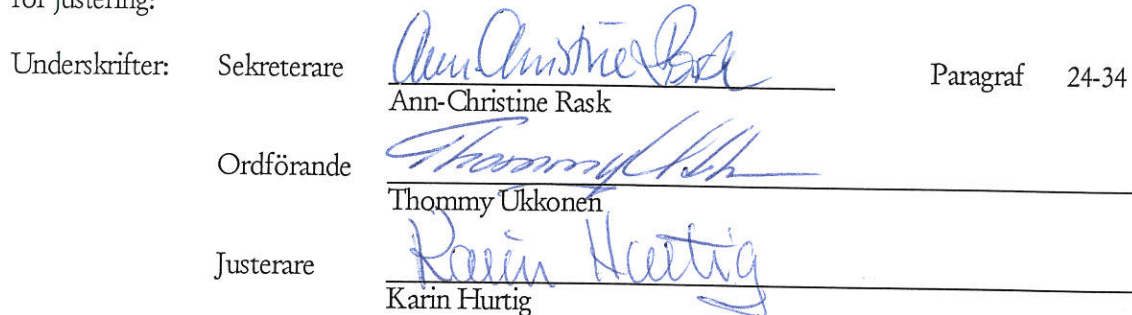 för justering:
Underskrifter: Sekreterare Ann Christine Rask Paragraf 24-34
Ann-Christine Rask
Ordförande Thommy Ukk
Thommy Ukkonen
Justerare Karin Hurtig
Karin Hurtig